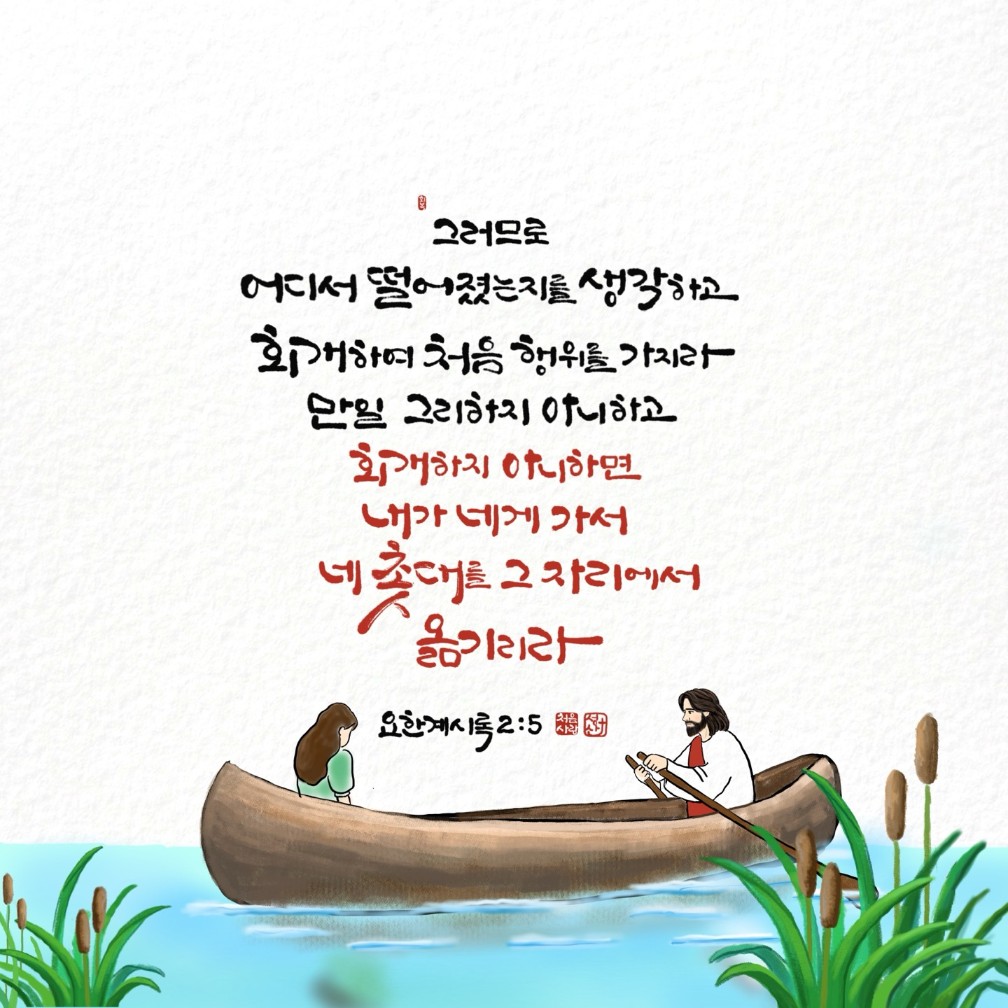 그러므로
어디서 떨어졌는지를 생각하고
회개하여 처음 행위를 가지라
만일 그리하지 아니하고
회개하지 아니하면
내가 네게 가서
네 촛대를 그 자리에서
옮기리라
요한계시록 2:5 처음사랑